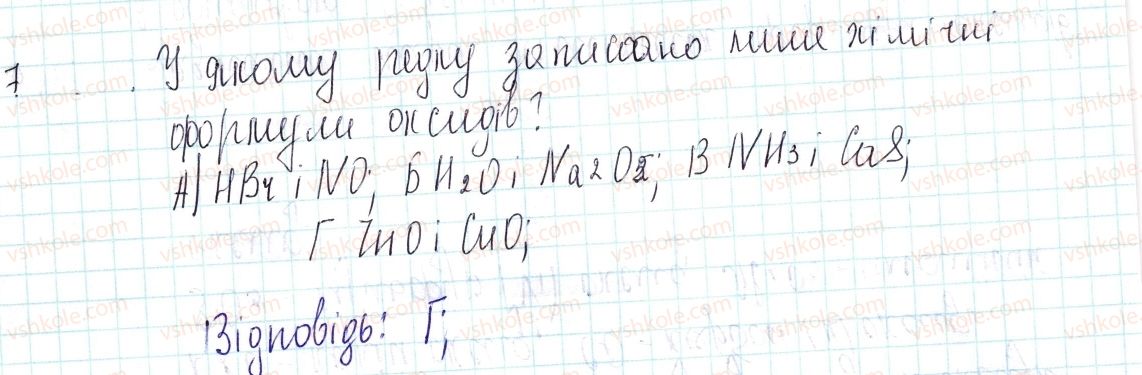 7 У якому рядку записано лише хімічні
формули оксидів?
А) HBr i NO; Б H2O i Na2O2; В NH3 i CaS;
Г ZnO i CuO;
Відповідь: Г;